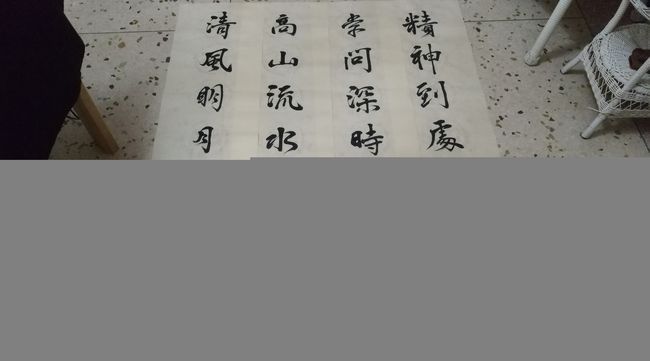 精神到處
學問深時
高山流水
清風明月